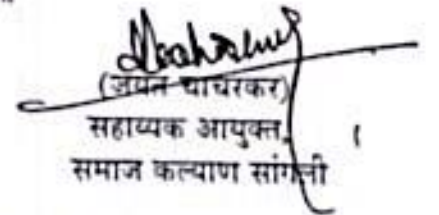 (जयंत चाचरकर)
सहाय्यक आयुक्त,
समाज कल्याण सांगली